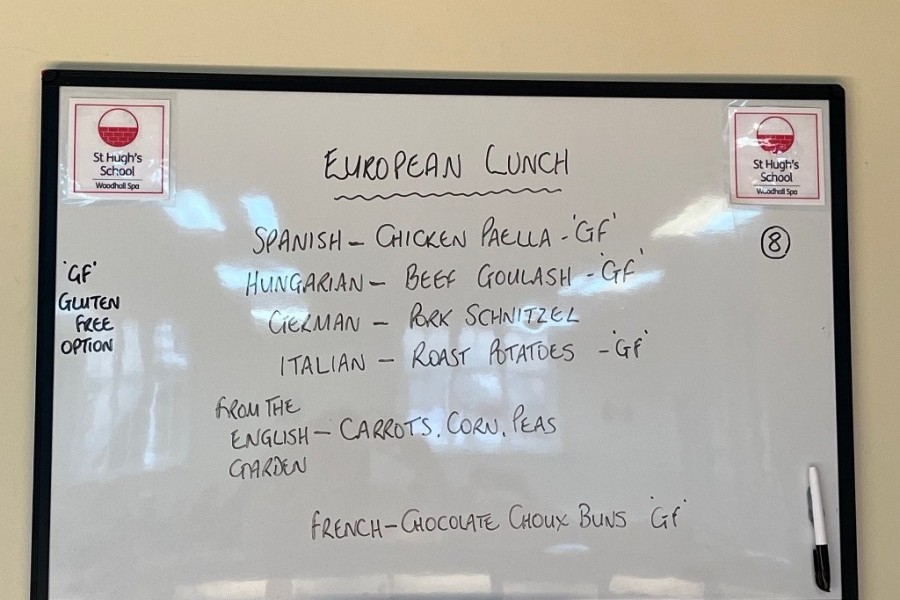 St Hugh's
School
Woodhall Spa
St Hugh's
School
Woodhall Spa
EUROPEAN LUNCH
SPANISH - CHICKEN PAELLA - 'GF'
8
HUNGARIAN - BEEF GOULASH - 'GF'
GERMAN - PORK SCHNITZEL
ITALIAN - ROAST POTATOES - 'GF'
'GF'
GLUTEN
FREE
OPTION
FROM THE
ENGLISH - CARROTS. CORN. PEAS
GARDEN
FRENCH - CHOCOLATE CHOUX BUNS 'GF'